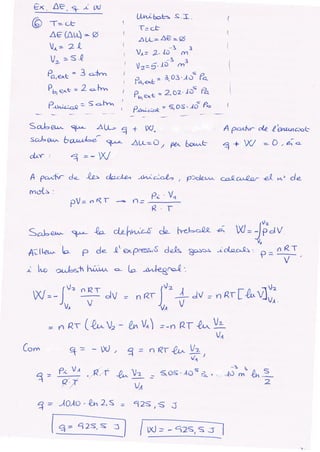 Ex. ΔE, q i W
⑥ T = ct
ΔE (ΔU) = 0
V₁ = 2 l
V₂ = 5 l
Pa,ext = 3 atm
Pb,ext = 2 atm
Pinicial = 5 atm
Unitats S.I.
T = ct
ΔU = ΔE = 0
V₁ = 2·10⁻³ m³
V₂ = 5·10⁻³ m³
Pa,ext = 3,03·10⁵ Pa
Pb,ext = 2,02·10⁵ Pa
Pinicial = 5,05·10⁵ Pa
Sabem que ΔU = q + W. A partir de l'enunciat
sabem també que ΔU = 0, per tant q + W = 0, és a
dir: q = -W
A partir de les dades inicials, podem calcular el nº de
mols:
pV = nRT → n = P₁·V₁ / R·T
Sabem que la definició de treball és W = -∫V₁V₂ p dV
Aïllem la p de l'expressió dels gasos ideals: p = nRT / V
i ho substituïm a la integral:
W = -∫V₁V₂ nRT/V dV = nRT ∫V₁V₂ 1/V dV = nRT [ln V]V₁V₂
= nRT (ln V₂ - ln V₁) = -nRT ln V₂/V₁
Com q = -W, q = nRT ln V₂/V₁,
q = P₁V₁/R·T · R·T ln V₂/V₁ = 5,05·10⁵ · 2·10⁻³ m³ ln 5/2
q = 1010 · ln 2,5 = 925,5 J
q = 925,5 J W = -925,5 J